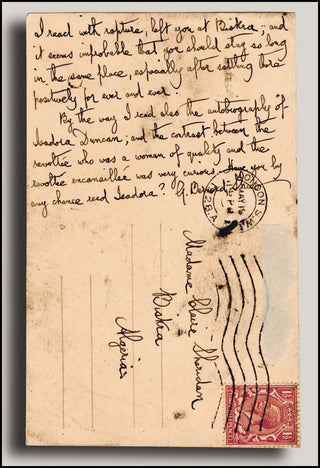 I read with rapture, left you at Biskra; and
it seems improbable that you should stay so long
in the same place, especially after settling there
positively for ever and ever.
By the way I read also the autobiography of
Isadora Duncan; and the contrast between the
révoltée who was a woman of quality and the
révoltée encanaillée was very curious. Have you by
any chance read Isadora? G. Bernard Shaw
LONDON S.W.1
MAY 15
PM
28.A
Madame Clare Sheridan
Biskra
Algeria
1½ 1½